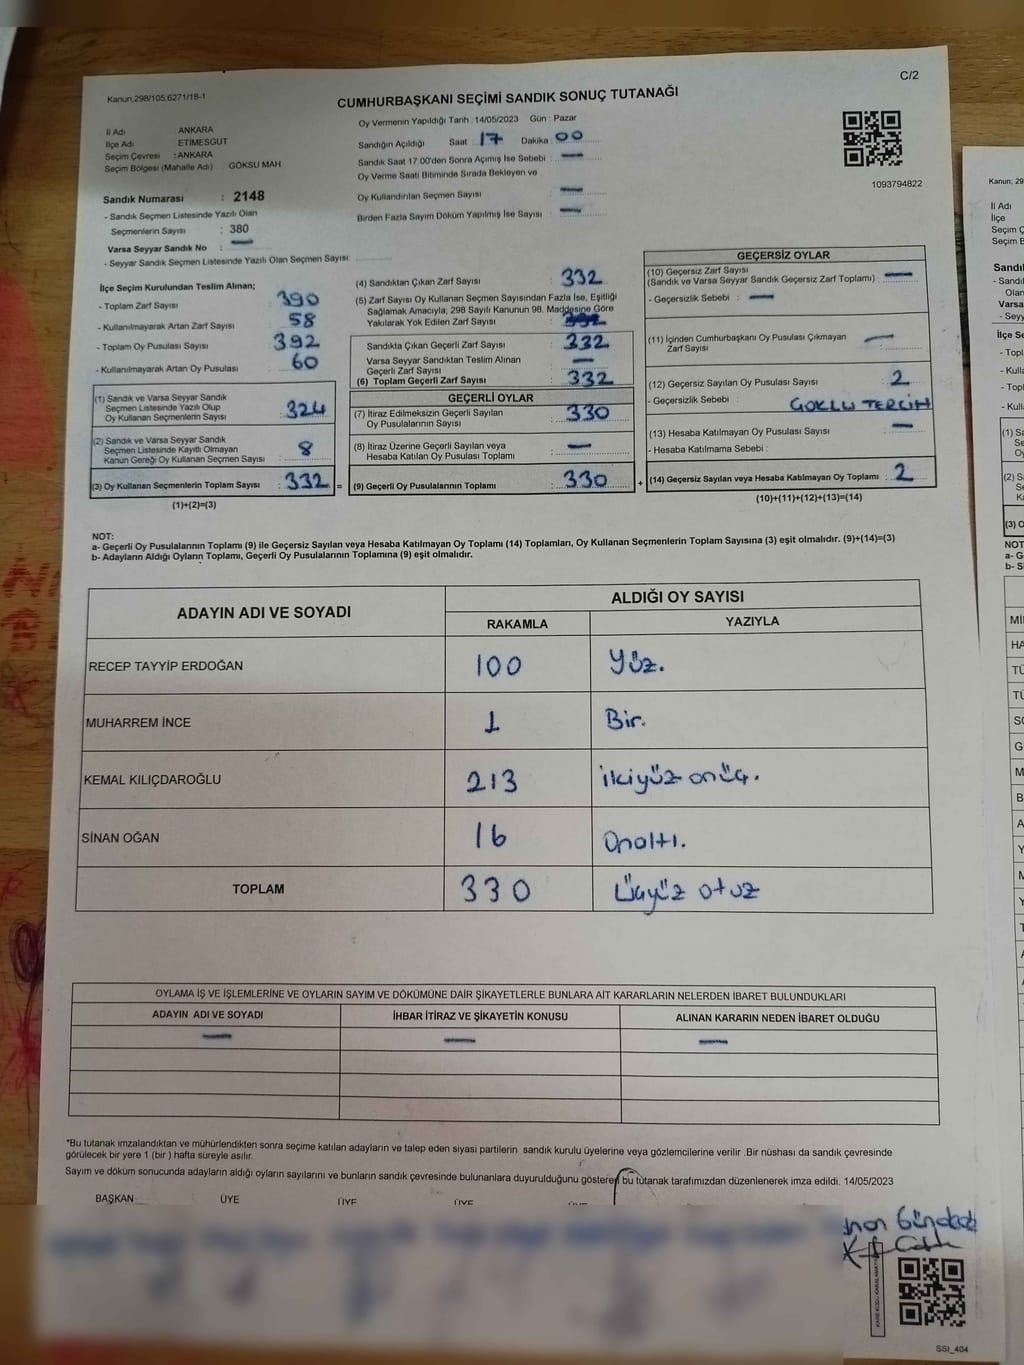 C/2
Kanun,298/105.6271/18-1
CUMHURBAŞKANI SEÇİMİ SANDIK SONUÇ TUTANAĞI
İl Adı ANKARA
İlçe Adı ETİMESGUT
Seçim Çevresi : ANKARA
Seçim Bölgesi (Mahalle Adı) GÖKSU MAH
Sandık Numarası : 2148
- Sandık Seçmen Listesinde Yazılı Olan
Seçmenlerin Sayısı : 380
Varsa Seyyar Sandık No : —
- Seyyar Sandık Seçmen Listesinde Yazılı Olan Seçmen Sayısı:
Oy Vermenin Yapıldığı Tarih : 14/05/2023 Gün : Pazar
Sandığın Açıldığı Saat : 17 Dakika : 00
Sandık Saat 17:00'den Sonra Açımış İse Sebebi : —
Oy Verme Saati Bitiminde Sırada Bekleyen ve
Oy Kullandırılan Seçmen Sayısı : —
Birden Fazla Sayım Döküm Yapılmış İse Sayısı : —
1093794822
İlçe Seçim Kurulundan Teslim Alınan;
- Toplam Zarf Sayısı : 390
- Kullanılmayarak Artan Zarf Sayısı : 58
- Toplam Oy Pusulası Sayısı : 392
- Kullanılmayarak Artan Oy Pusulası : 60
(1) Sandık ve Varsa Seyyar Sandık
Seçmen Listesinde Yazılı Olup
Oy Kullanan Seçmenlerin Sayısı : 324
(2) Sandık ve Varsa Seyyar Sandık
Seçmen Listesinde Kayıtlı Olmayan
Kanun Gereği Oy Kullanan Seçmen Sayısı : 8
(3) Oy Kullanan Seçmenlerin Toplam Sayısı : 332 =
(1)+(2)=(3)
(4) Sandıktan Çıkan Zarf Sayısı : 332
(5) Zarf Sayısı Oy Kullanan Seçmen Sayısından Fazla İse, Eşitliği
Sağlamak Amacıyla, 298 Sayılı Kanunun 98. Maddesine Göre
Yakılarak Yok Edilen Zarf Sayısı :
Sandıkta Çıkan Geçerli Zarf Sayısı : 332
Varsa Seyyar Sandıktan Teslim Alınan
Geçerli Zarf Sayısı : —
(6) Toplam Geçerli Zarf Sayısı : 332
GEÇERLİ OYLAR
(7) İtiraz Edilmeksizin Geçerli Sayılan
Oy Pusulalarının Sayısı : 330
(8) İtiraz Üzerine Geçerli Sayılan veya
Hesaba Katılan Oy Pusulası Toplamı : —
(9) Geçerli Oy Pusulalarının Toplamı : 330 +
GEÇERSİZ OYLAR
(10) Geçersiz Zarf Sayısı
(Sandık ve Varsa Seyyar Sandık Geçersiz Zarf Toplamı) : —
- Geçersizlik Sebebi : —
(11) İçinden Cumhurbaşkanı Oy Pusulası Çıkmayan
Zarf Sayısı : —
(12) Geçersiz Sayılan Oy Pusulası Sayısı : 2
- Geçersizlik Sebebi : GOKLU TERCİH
(13) Hesaba Katılmayan Oy Pusulası Sayısı : —
- Hesaba Katılmama Sebebi :
(14) Geçersiz Sayılan veya Hesaba Katılmayan Oy Toplamı : 2
(10)+(11)+(12)+(13)=(14)
NOT:
a- Geçerli Oy Pusulalarının Toplamı (9) ile Geçersiz Sayılan veya Hesaba Katılmayan Oy Toplamı (14) Toplamları, Oy Kullanan Seçmenlerin Toplam Sayısına (3) eşit olmalıdır. (9)+(14)=(3)
b- Adayların Aldığı Oyların Toplamı, Geçerli Oy Pusulalarının Toplamına (9) eşit olmalıdır.
ADAYIN ADI VE SOYADI ALDIĞI OY SAYISI
RAKAMLA YAZIYLA
RECEP TAYYİP ERDOĞAN 100 Yüz.
MUHARREM İNCE 1 Bir.
KEMAL KILIÇDAROĞLU 213 ikiyüz onüç.
SİNAN OĞAN 16 Onaltı.
TOPLAM 330 Üçyüz otuz
OYLAMA İŞ VE İŞLEMLERİNE VE OYLARIN SAYIM VE DÖKÜMÜNE DAİR ŞİKAYETLERLE BUNLARA AİT KARARLARIN NELERDEN İBARET BULUNDUKLARI
ADAYIN ADI VE SOYADI İHBAR İTİRAZ VE ŞİKAYETİN KONUSU ALINAN KARARIN NEDEN İBARET OLDUĞU
— — —
*Bu tutanak imzalandıktan ve mühürlendikten sonra seçime katılan adayların ve talep eden siyasi partilerin sandık kurulu üyelerine veya gözlemcilerine verilir .Bir nüshası da sandık çevresinde
görülecek bir yere 1 (bir ) hafta süreyle asılır.
Sayım ve döküm sonucunda adayların aldığı oyların sayılarını ve bunların sandık çevresinde bulunanlara duyurulduğunu gösteren bu tutanak tarafımızdan düzenlenerek imza edildi. 14/05/2023
BAŞKAN ÜYE ÜYE ÜYE
SSI_404
Kanun; 29
İl Adı
İlçe
Seçim Ç
Seçim B
Sandı
- Sandı
Olan
Varsa
- Seyy
İlçe Se
- Topl
- Kulla
- Topl
- Kull